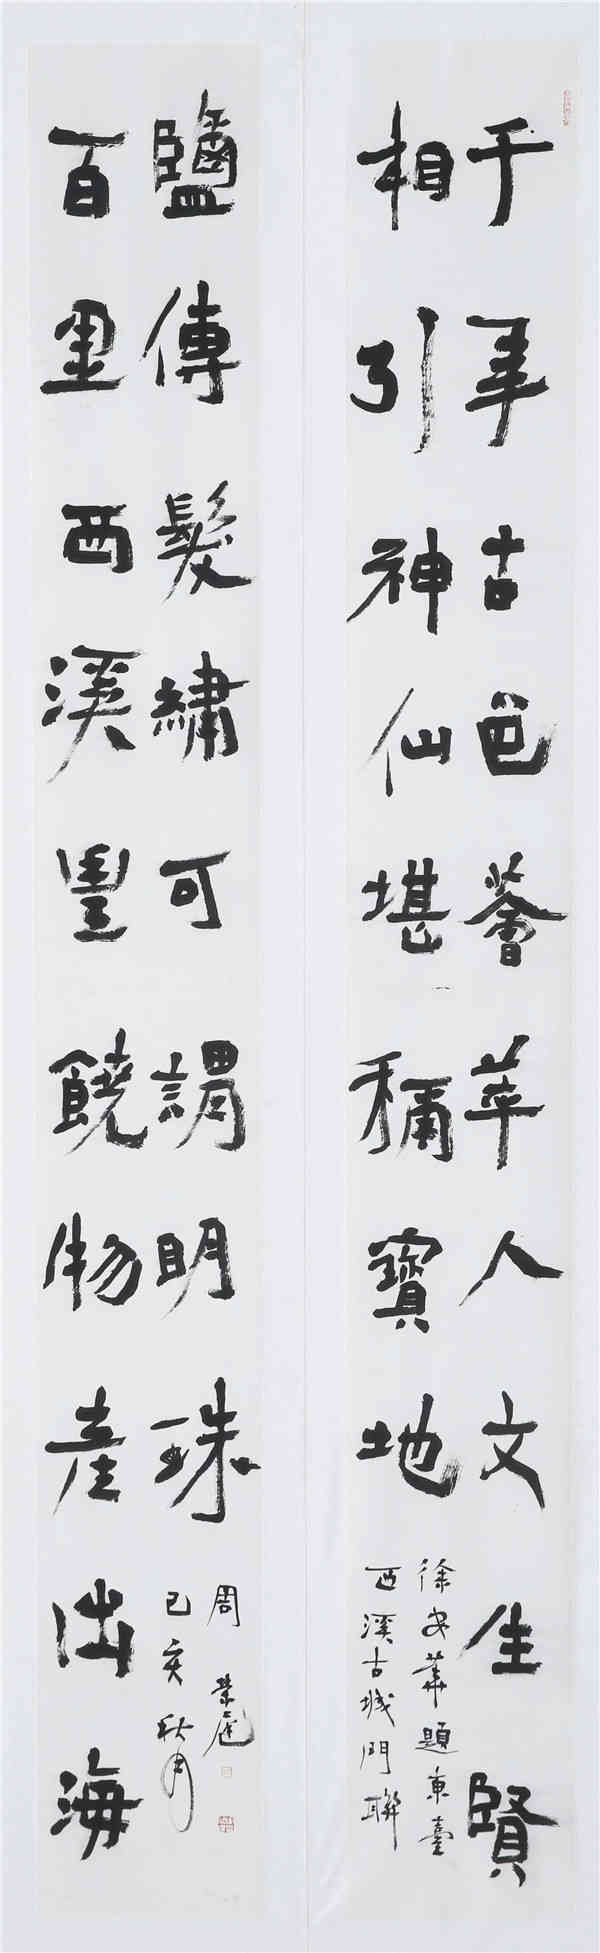 千年古邑薈萃人文生賢
相引神仙堪稱寶地
徐安華題東臺
西溪古城門聯
百里西溪豐饒物產出海
鹽傳髮繡可謂明珠
己亥秋月
周榮